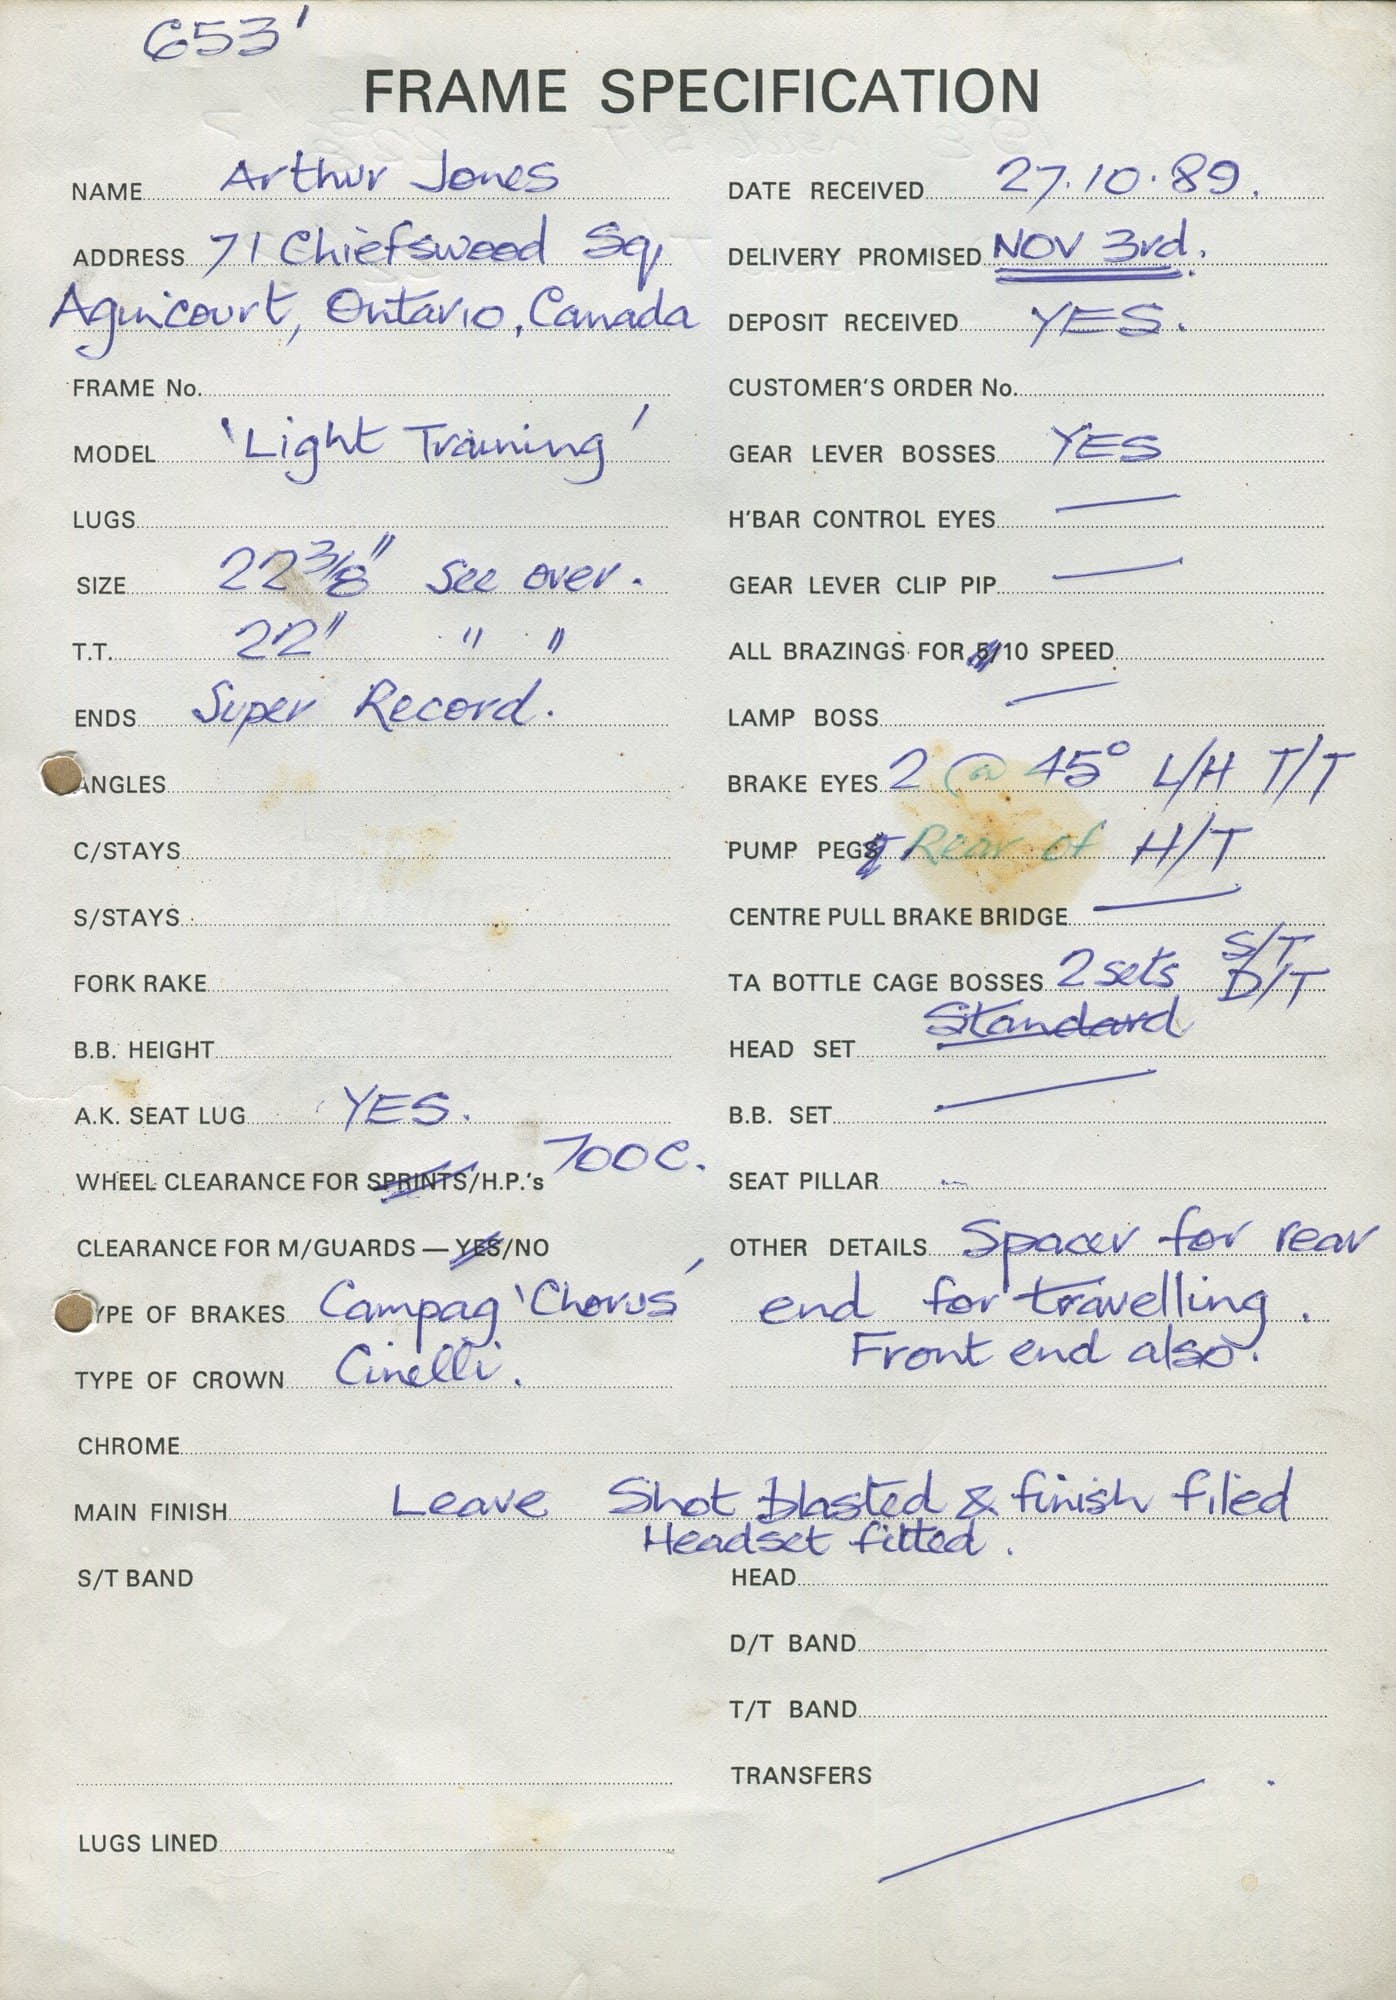 653'
FRAME SPECIFICATION
NAME Arthur Jones
ADDRESS 71 Chiefswood Sq,
Agincourt, Ontario, Canada
FRAME No.
MODEL 'Light Training'
LUGS
SIZE 22 3/8" See over.
T.T. 22" " "
ENDS Super Record.
ANGLES
C/STAYS
S/STAYS
FORK RAKE
B.B. HEIGHT
A.K. SEAT LUG YES.
WHEEL CLEARANCE FOR SPRINTS/H.P.'s 700C.
CLEARANCE FOR M/GUARDS — YES/NO
TYPE OF BRAKES Campag 'Chorus'
TYPE OF CROWN Cinelli.
DATE RECEIVED 27.10.89.
DELIVERY PROMISED NOV 3rd.
DEPOSIT RECEIVED YES.
CUSTOMER'S ORDER No.
GEAR LEVER BOSSES YES
H'BAR CONTROL EYES
GEAR LEVER CLIP PIP
ALL BRAZINGS FOR 5/10 SPEED
LAMP BOSS
BRAKE EYES 2 @ 45° L/H T/T
PUMP PEGS Rear of H/T
CENTRE PULL BRAKE BRIDGE
TA BOTTLE CAGE BOSSES 2 sets S/T
D/T
HEAD SET Standard
B.B. SET
SEAT PILLAR
OTHER DETAILS Spacer for rear
end for travelling.
Front end also.
CHROME
MAIN FINISH Leave Shot blasted & finish filed
Headset fitted.
S/T BAND
HEAD
D/T BAND
T/T BAND
TRANSFERS
LUGS LINED